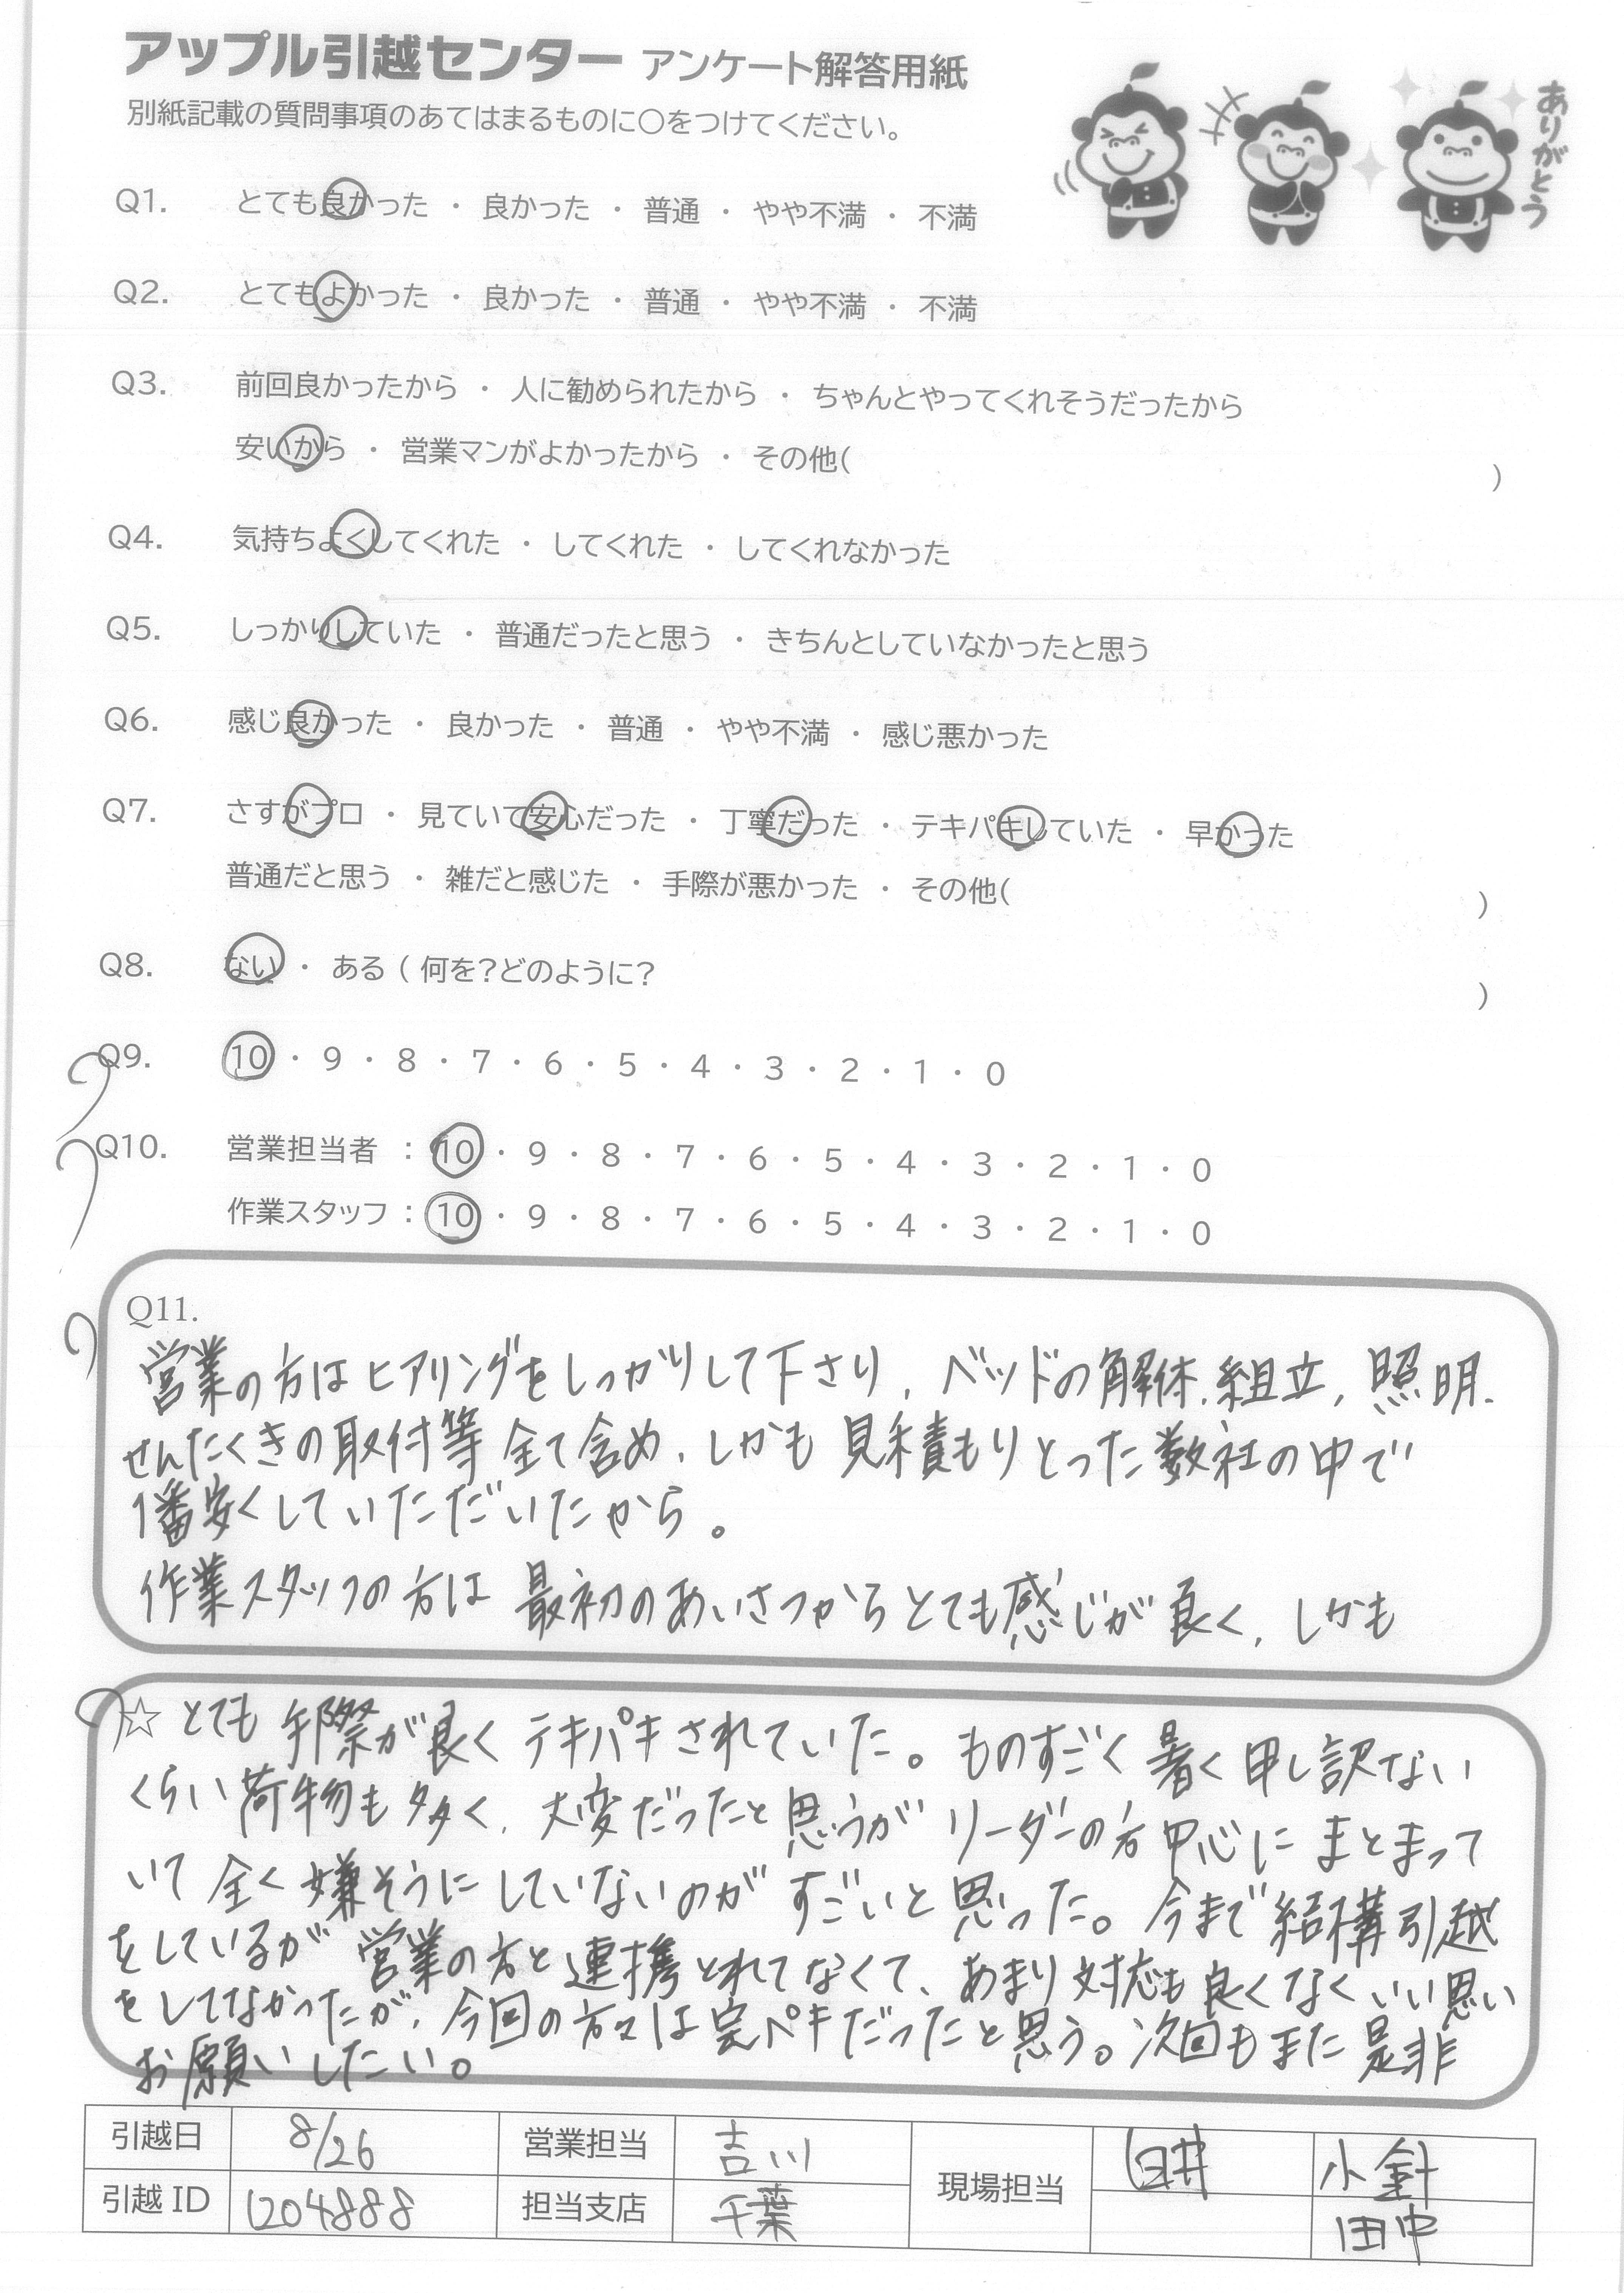 アップル引越センター アンケート解答用紙
別紙記載の質問事項のあてはまるものに○をつけてください。
ありがとう
Q1. とても良かった ・ 良かった ・ 普通 ・ やや不満 ・ 不満
Q2. とてもよかった ・ 良かった ・ 普通 ・ やや不満 ・ 不満
Q3. 前回良かったから ・ 人に勧められたから ・ ちゃんとやってくれそうだったから
安いから ・ 営業マンがよかったから ・ その他( )
Q4. 気持ちよくしてくれた ・ してくれた ・ してくれなかった
Q5. しっかりしていた ・ 普通だったと思う ・ きちんとしていなかったと思う
Q6. 感じ良かった ・ 良かった ・ 普通 ・ やや不満 ・ 感じ悪かった
Q7. さすがプロ ・ 見ていて安心だった ・ 丁寧だった ・ テキパキしていた ・ 早かった
普通だと思う ・ 雑だと感じた ・ 手際が悪かった ・ その他( )
Q8. ない ・ ある ( 何を?どのように? )
Q9. 10 ・ 9 ・ 8 ・ 7 ・ 6 ・ 5 ・ 4 ・ 3 ・ 2 ・ 1 ・ 0
Q10. 営業担当者 : 10 ・ 9 ・ 8 ・ 7 ・ 6 ・ 5 ・ 4 ・ 3 ・ 2 ・ 1 ・ 0
作業スタッフ : 10 ・ 9 ・ 8 ・ 7 ・ 6 ・ 5 ・ 4 ・ 3 ・ 2 ・ 1 ・ 0
Q11.
営業の方はヒアリングをしっかりして下さり、ベッドの解体、組立、照明、
せんたくきの取付等全て含め、しかも見積もりとった数社の中で
1番安くしていただいたから。
作業スタッフの方は最初のあいさつからとても感じが良く、しかも
☆とても手際が良くテキパキされていた。ものすごく暑く申し訳ない
くらい荷物も多く、大変だったと思うがリーダーの方中心にまとまって
いて全く嫌そうにしていないのがすごいと思った。今まで結構引越
をしているが営業の方と連携とれてなくて、あまり対応も良くなくいい思い
をしてなかったが、今回の方々は完ペキだったと思う。次回もまた是非
お願いしたい。
引越日 8/26 営業担当 吉川 現場担当 臼井 小針
引越ID 1204888 担当支店 千葉 田中